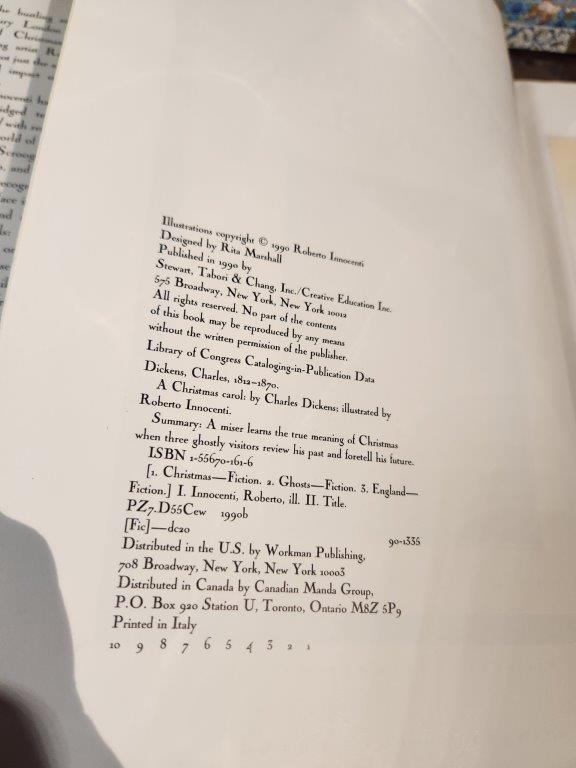 he bustling
ry London
f Christmas
ng artist R
not just the
l impact
nocenti ha
idged
with
orld of
Scroog
, and
ecogn
ace
ad
ls:
Illustrations copyright © 1990 Roberto Innocenti
Designed by Rita Marshall
Published in 1990 by
Stewart, Tabori & Chang, Inc./Creative Education Inc.
575 Broadway, New York, New York 10012
All rights reserved. No part of the contents
of this book may be reproduced by any means
without the written permission of the publisher.
Library of Congress Cataloging-in-Publication Data
Dickens, Charles, 1812–1870.
A Christmas carol: by Charles Dickens; illustrated by
Roberto Innocenti.
Summary: A miser learns the true meaning of Christmas
when three ghostly visitors review his past and foretell his future.
ISBN 1-55670-161-6
[1. Christmas—Fiction. 2. Ghosts—Fiction. 3. England—
Fiction.] I. Innocenti, Roberto, ill. II. Title.
PZ7.D55Cew 1990b
[Fic]—dc20 90-1335
Distributed in the U.S. by Workman Publishing,
708 Broadway, New York, New York 10003
Distributed in Canada by Canadian Manda Group,
P.O. Box 920 Station U, Toronto, Ontario M8Z 5P9
Printed in Italy
10 9 8 7 6 5 4 3 2 1